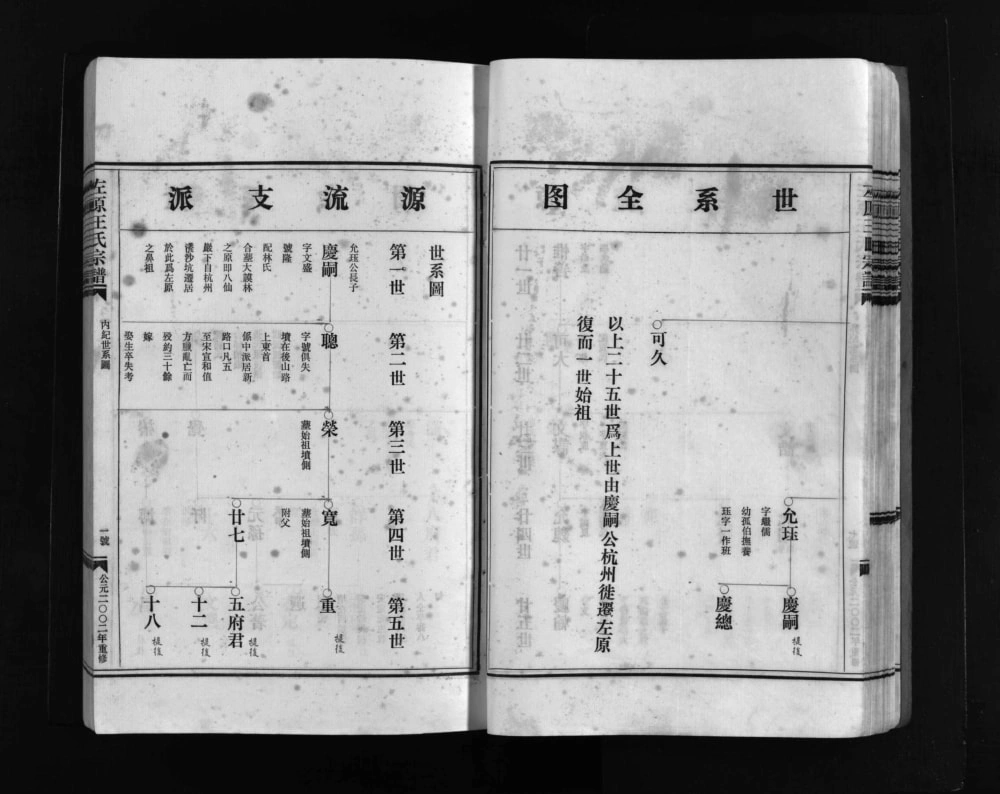 世系全图
可久
以上二十五世爲上世由慶嗣公杭州徙遷左原
復而一世始祖
允珏
字繼儒
幼孤伯撫養
珏字一作班
慶嗣
提後
慶總
源流支派
世系圖
第一世
第二世
第三世
第四世
第五世
允珏公長子
慶嗣
字文盛
號隆
配林氏
合葬大護林
之原即八仙
巖下自杭州
遷居
於此爲左原
之鼻祖
聰
字號俱失
墳在後山路
上東首
係中派居新
路口凡五
至宋宣和值
方臘亂亡而
歿約三十餘
嫁
娶生卒失考
榮
葬始祖墳側
寬
葬始祖墳側
附父
廿七
重
提後
五府君
提後
十二
提後
十八
提後
左原王氏宗譜
丙紀世系圖
一號
公元二〇〇二年重修